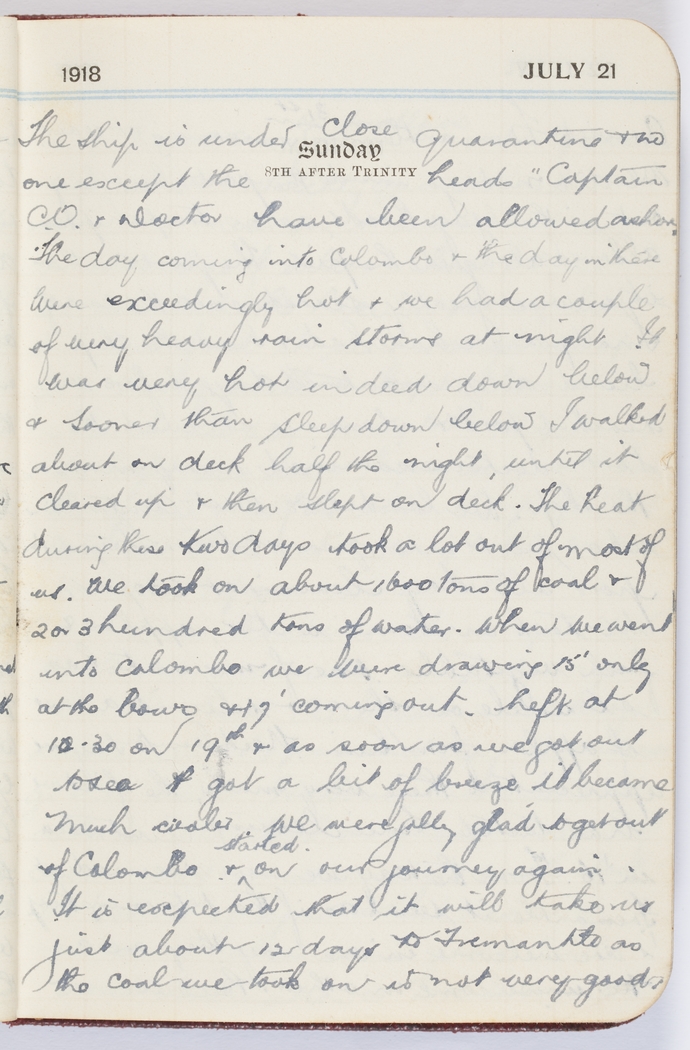 1918 JULY 21
The ship is under close quarantine & no
Sunday
8TH AFTER TRINITY
one except the heads "Captain
C.O. & Doctor have been allowed ashore.
The day coming into Colombo & the day in there
were exceedingly hot & we had a couple
of very heavy rain storms at night It
was very hot indeed down below
& sooner than sleep down below I walked
about on deck half the night, until it
cleared up & then slept on deck. The heat
during these two days took a lot out of most of
us. We took on about 1600 tons of coal &
2 or 3 hundred tons of water. When we went
into Colombo we were drawing 15' only
at the bows & 17' coming out. Left at
12.30 on 19th & as soon as we got out
to sea & got a bit of breeze it became
much cooler. We were jolly glad to get out
of Colombo & started on our journey again.
It is expected that it will take us
just about 12 days to Fremantle as
the coal we took on is not very good.